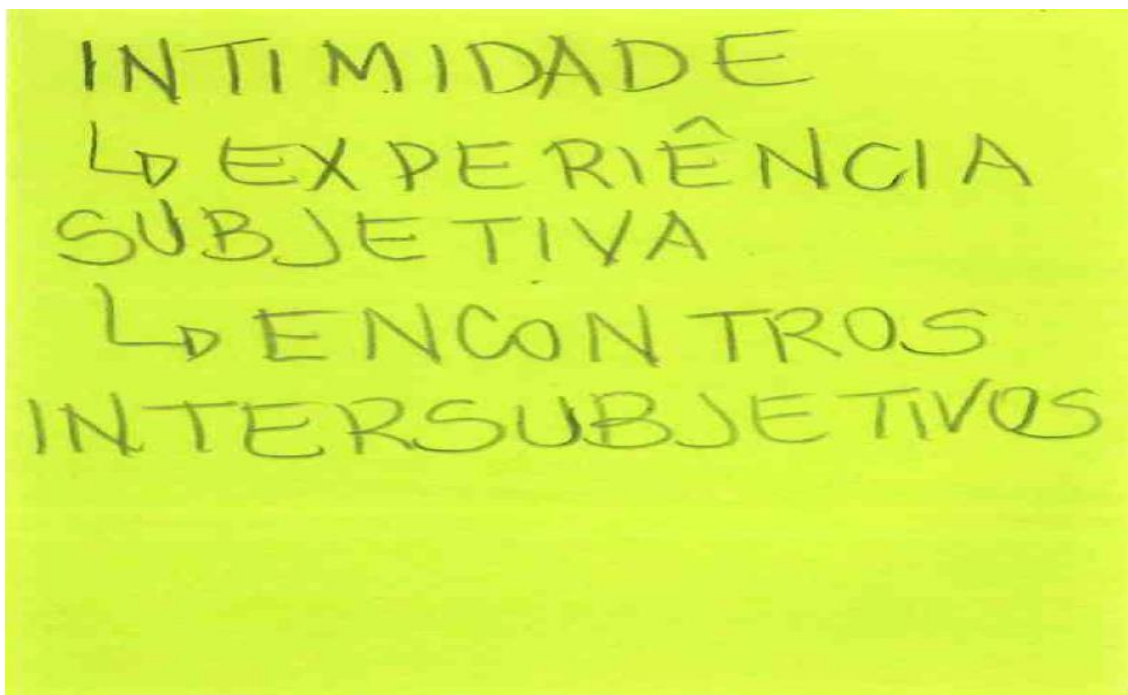 INTIMIDADE
↳ EXPERIÊNCIA
SUBJETIVA
↳ ENCONTROS
INTERSUBJETIVOS